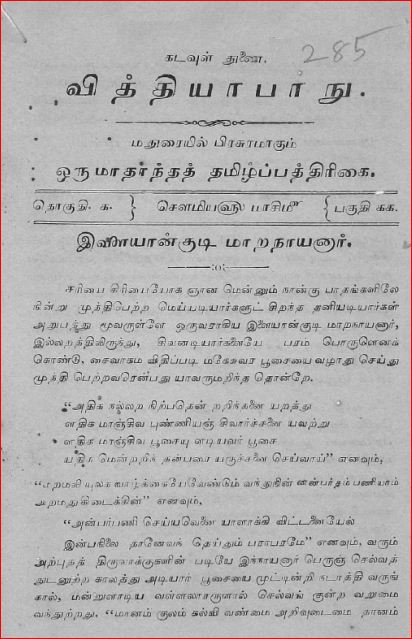 கடவுள் துணை.
285
வித்தியாபாநு.
மதுரையில் பிரசுரமாகும்
ஒரு மாதாந்தத் தமிழ்ப்பத்திரிகை.
தொகுதி. க. } சௌமியஹு பாசிமீ { பகுதி கக.
இளையான்குடி மாறநாயனார்.
சரியை கிரியையோக ஞான மென்னும் நான்கு பாதங்களிலே
நின்று முத்திபெற்ற மெய்யடியார்களுட் சிறந்த தனியடியார்கள்
அறுபத்து மூவருள்ளே ஒருவராகிய இளையான்குடி மாறநாயனார்,
இல்லறத்திலிருந்து, சிவனடியார்களையே பரம் பொருளெனக்
கொண்டு, சைவாகம விதிப்படி மகேசுவர பூசையை வழாது செய்து
முத்தி பெற்றவரென்பது யாவருமறிந்த தொன்றே.
“அதிக நல்லற நிற்பதென் றறிந்தனை யறத்து
ளதிக மாஞ்சிவ புண்ணியஞ் சிவார்ச்சனை யவற்று
ளதிக மாஞ்சிவ பூசையு ளடியவர் பூசை
யதிக மென்றறிந் தன்பரை யருச்சனை செய்வாய்” எனவும்,
வாழ்க்கையேவேண்டும் வந்துநின் பணியாம்
அறமதுகிடைக்கின்” எனவும்,
“அன்பர்பணி செய்யவெனை யாளாக்கி விட்டனையேல்
இன்பநிலை தானேவந் தெய்தும் பராபரமே” எனவும், வரும்
அற்புதத் திருவாக்குகளின் படியே இந்நாயனார் பெருஞ் செல்வத்
துடனுற்ற காலத்து அடியார் பூசையை முட்டின்றி நடாத்தி வருங்
கால், மன்றுளாடிய வள்ளலாரருளால் செல்வங் குன்ற வறுமை
வந்துற்றது. “மானம் குலம் கல்வி வண்மை அறிவுடைமை தானம்